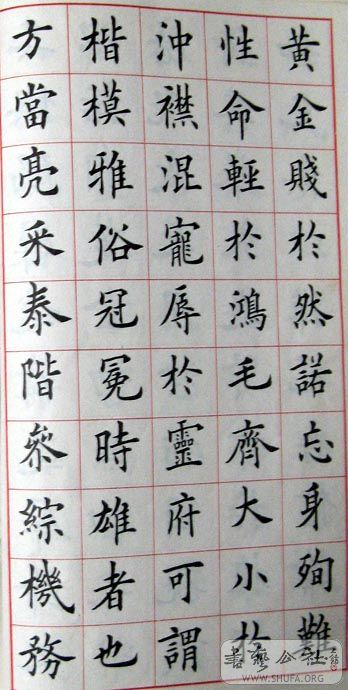 黄金賤於然諾忘身殉難
性命輕於鴻毛齊大小於
沖襟混寵辱於靈府可謂
楷模雅俗冠冕時雄者也
方當亮采泰階參綜機務
書艺公社
WWW.SHUFA.ORG